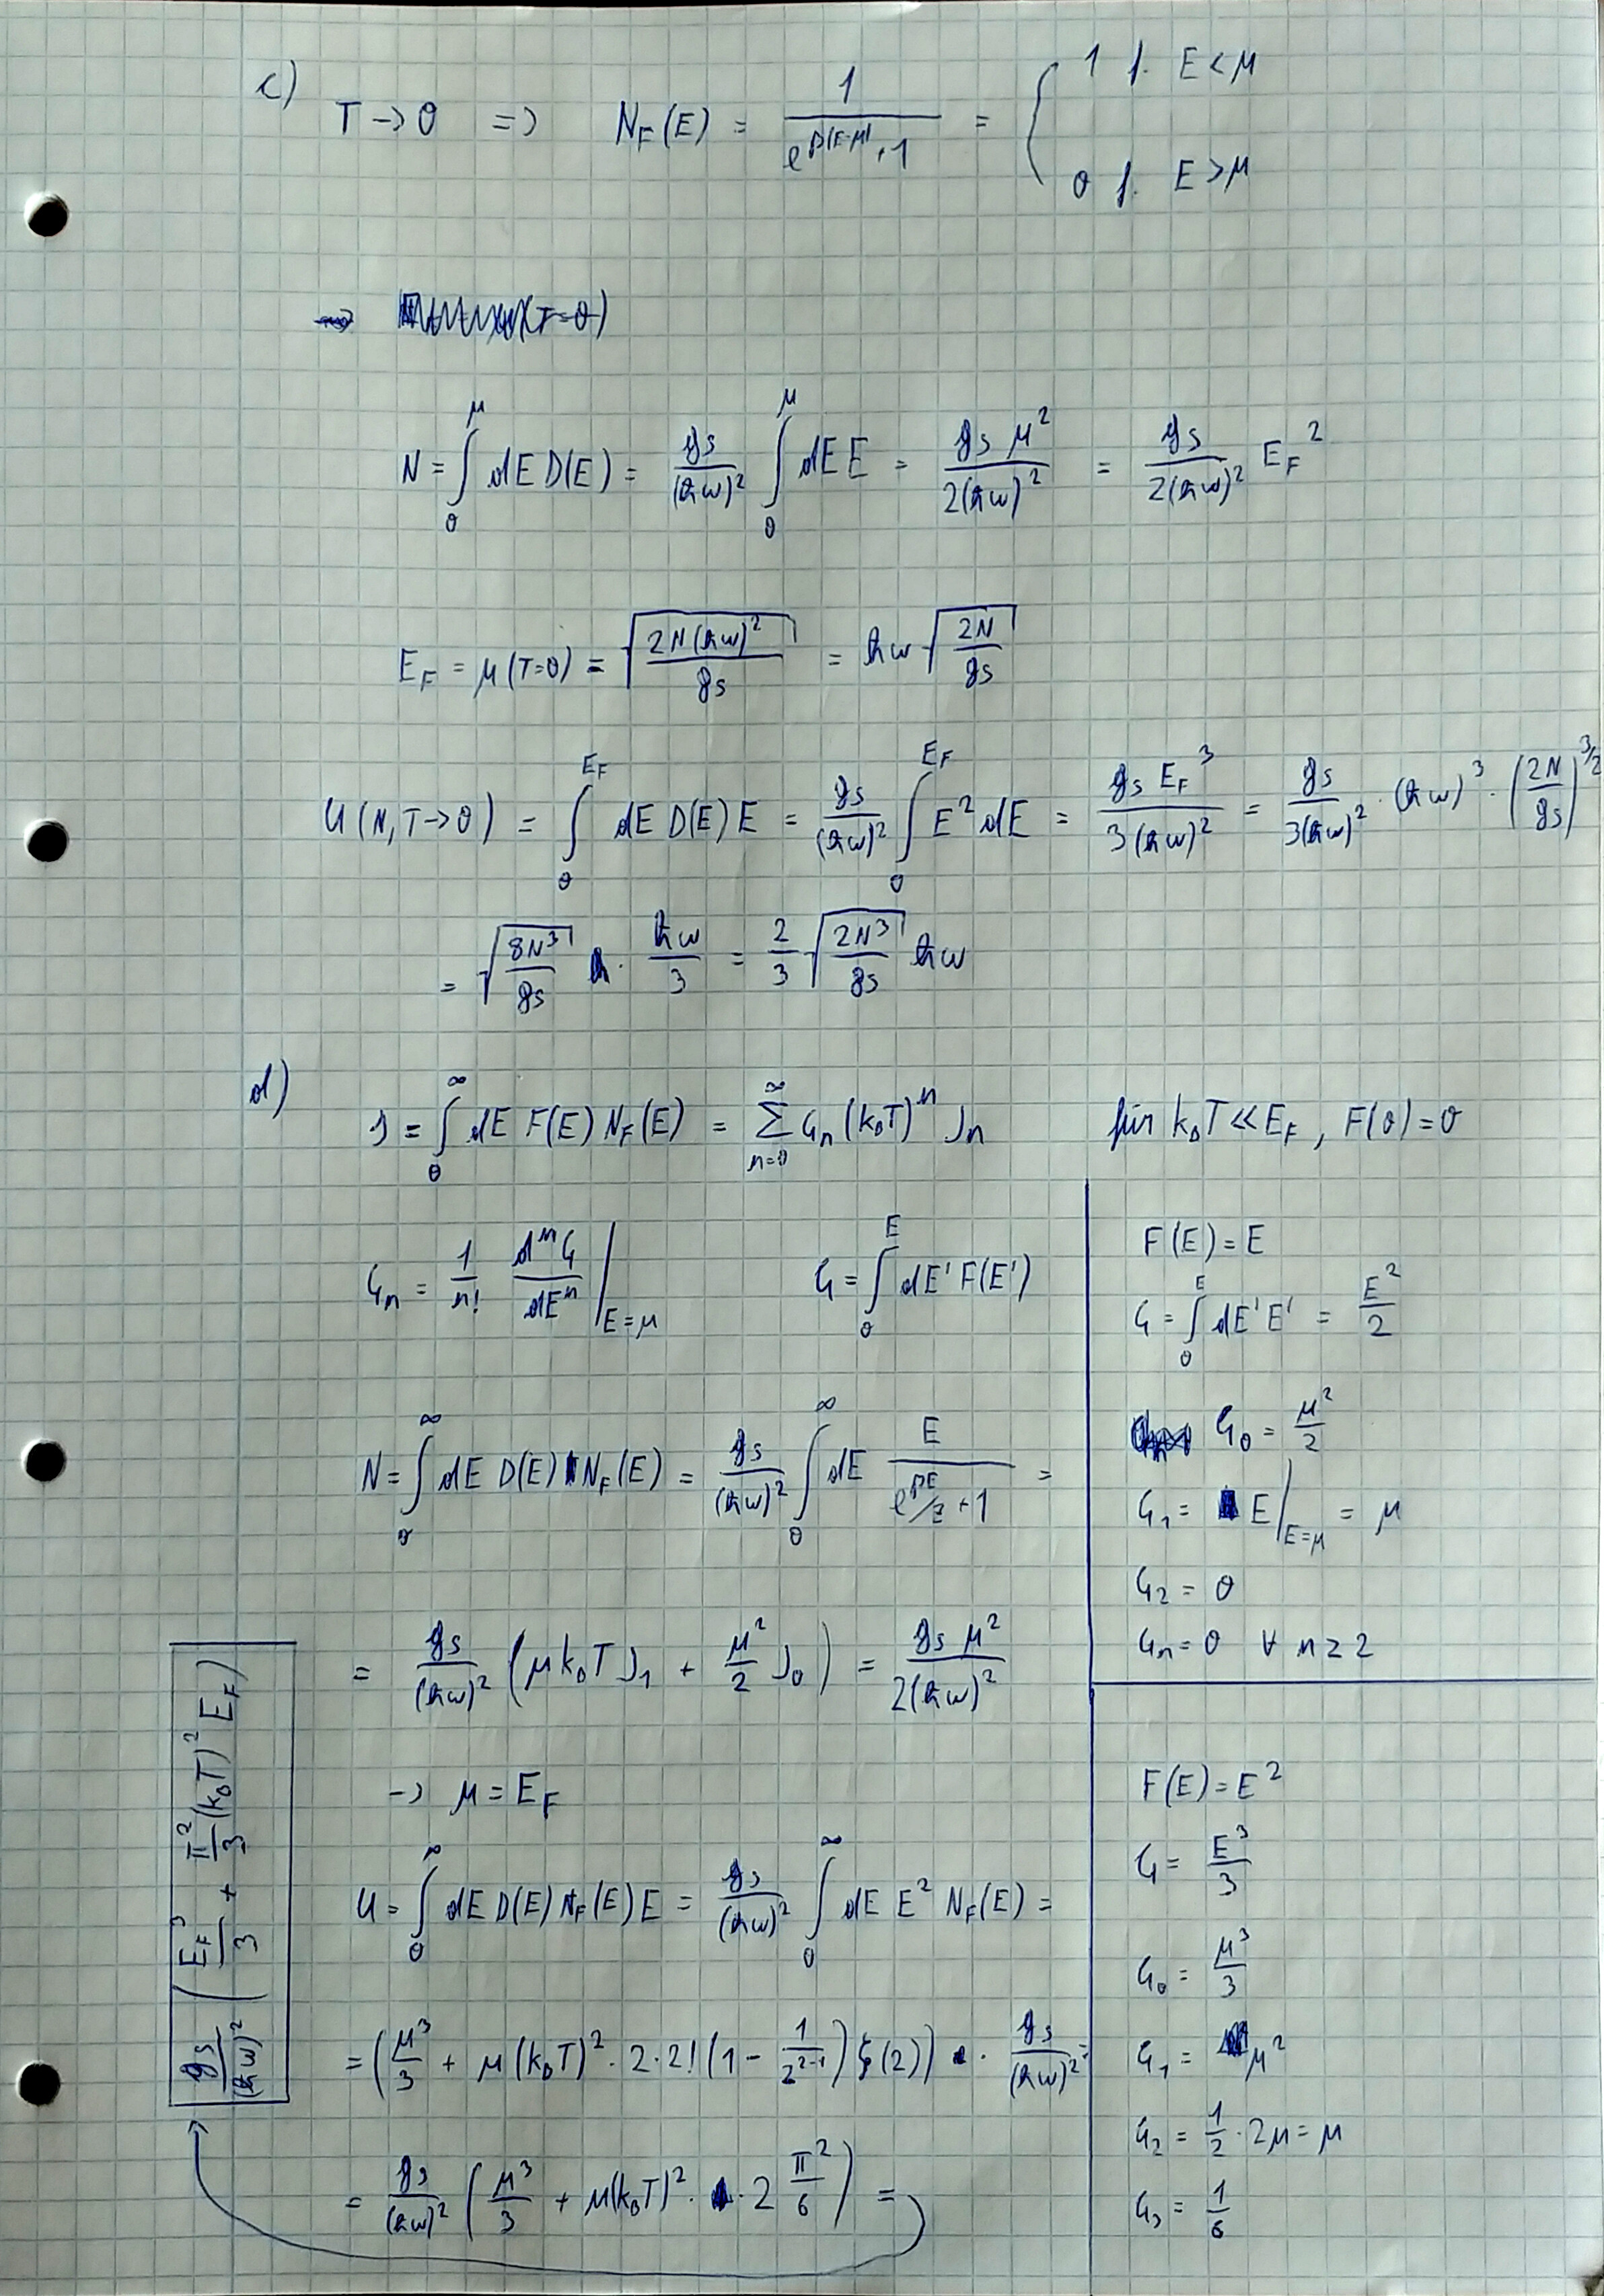 c)
T → 0 => N_F(E) = 1/(e^{β(E-μ)}+1) = { 1 f. E < μ
0 f. E > μ
(T=0)
N = ∫_0^μ dE D(E) = g_s/(ħω)^2 ∫_0^μ dE E = g_s μ^2/(2(ħω)^2) = g_s/(2(ħω)^2) E_F^2
E_F = μ(T=0) = √(2N(ħω)^2/g_s) = ħω √(2N/g_s)
U(N,T→0) = ∫_0^{E_F} dE D(E) E = g_s/(ħω)^2 ∫_0^{E_F} E^2 dE = g_s E_F^3/(3(ħω)^2) = g_s/(3(ħω)^2) · (ħω)^3 · (2N/g_s)^{3/2}
= √(8N^3/g_s) · ħω/3 = 2/3 √(2N^3/g_s) ħω
d)
I = ∫_0^∞ dE F(E) N_F(E) = Σ_{n=0}^∞ G_n (k_B T)^n J_n für k_B T ≪ E_F, F(0) = 0
G_n = 1/n! d^n G/dE^n |_{E=μ} G = ∫_0^E dE' F(E')
N = ∫_0^∞ dE D(E) N_F(E) = g_s/(ħω)^2 ∫_0^∞ dE E/(e^{βE}/z + 1) =
= g_s/(ħω)^2 (μ k_B T J_1 + μ^2/2 J_0) = g_s μ^2/(2(ħω)^2)
→ μ = E_F
U = ∫_0^∞ dE D(E) N_F(E) E = g_s/(ħω)^2 ∫_0^∞ dE E^2 N_F(E) =
= (μ^3/3 + μ(k_B T)^2 · 2·2! (1 - 1/2^{2-1}) ζ(2)) · g_s/(ħω)^2 =
= g_s/(ħω)^2 (μ^3/3 + μ(k_B T)^2 · 2 π^2/6) =
g_s/(ħω)^2 (E_F^3/3 + π^2/3 (k_B T)^2 E_F)
F(E) = E
G = ∫_0^E dE' E' = E^2/2
G_0 = μ^2/2
G_1 = E |_{E=μ} = μ
G_2 = 0
G_n = 0 ∀ n ≥ 2
F(E) = E^2
G = E^3/3
G_0 = μ^3/3
G_1 = μ^2
G_2 = 1/2 · 2μ = μ
G_3 = 1/6